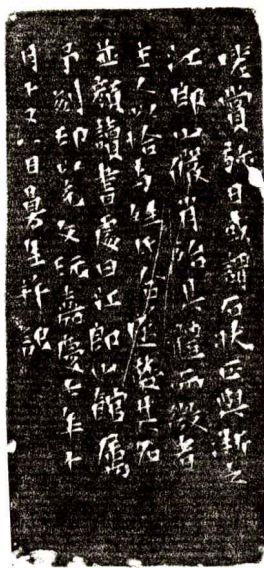 嗟賞弥日或謂石狀正與浙之
江郎山儼肖殆具體而微者
上人以貽其石
並顏讀書處曰江郎山館屬
予刻印以充文玩嘉慶七年十
月十又八日曼生并記